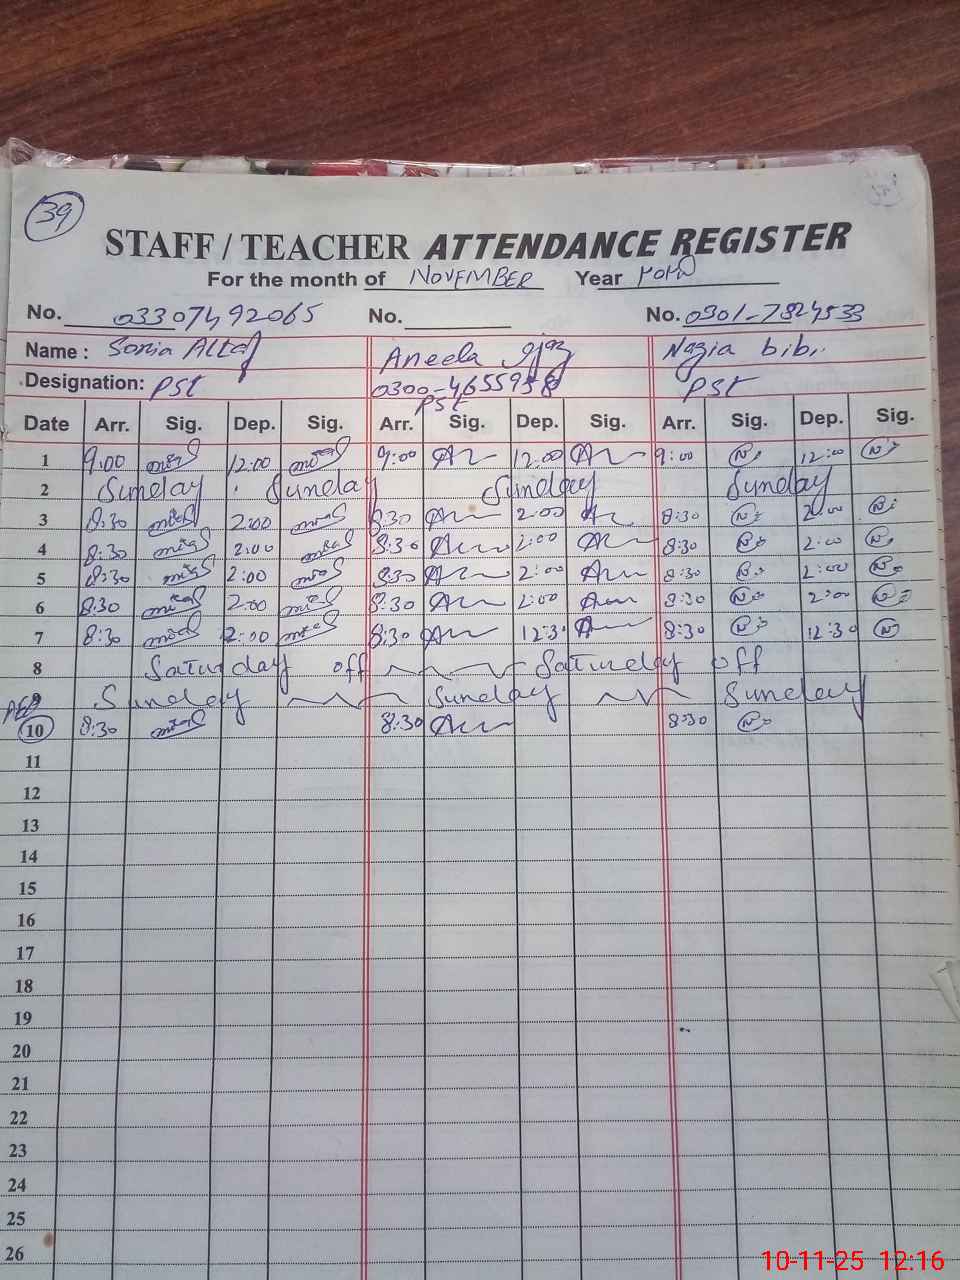 39
STAFF / TEACHER ATTENDANCE REGISTER
For the month of NOVEMBER Year
No. 03307492065 No. No. 0301-7824533
Name : Sonia Altaf Aneela Nazia bibi
Designation: PST 0300-4655958 PST
PST
Date Arr. Sig. Dep. Sig. Arr. Sig. Dep. Sig. Arr. Sig. Dep. Sig.
1 9:00 12:00 9:00 12:00 9:00 12:00
2 Sunday Sunday Sunday Sunday
3 8:30 2:00 8:30 2:00 8:30 2:00
4 8:30 2:00 8:30 2:00 8:30 2:00
5 8:30 2:00 8:30 2:00 8:30 2:00
6 8:30 2:00 8:30 2:00 8:30 2:00
7 8:30 2:00 8:30 12:30 8:30 12:30
8 Saturday off Saturday off
9 Sunday Sunday Sunday
10 8:30 8:30 8:30
11
12
13
14
15
16
17
18
19
20
21
22
23
24
25
26
10-11-25 12:16